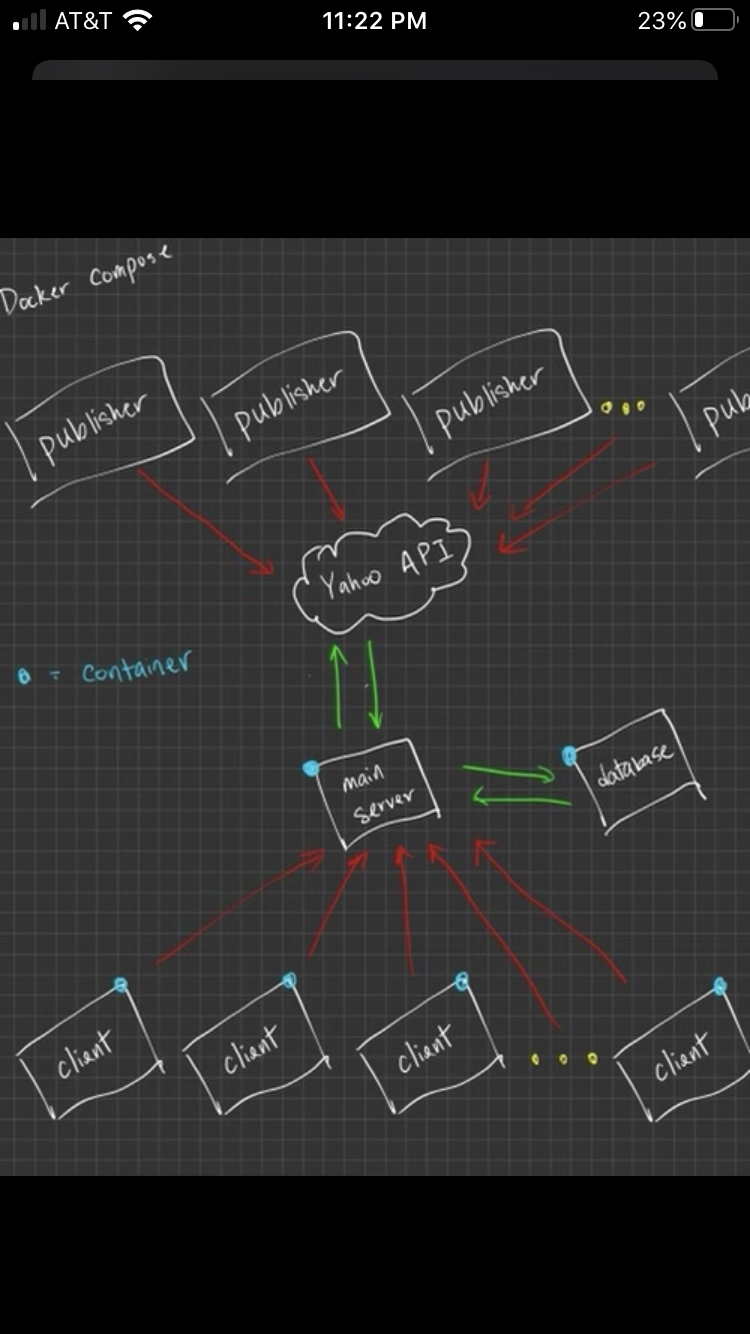 AT&T 11:22 PM 23%
Docker compose
publisher publisher publisher pub
Yahoo API
= container
main
server
database
client client client client